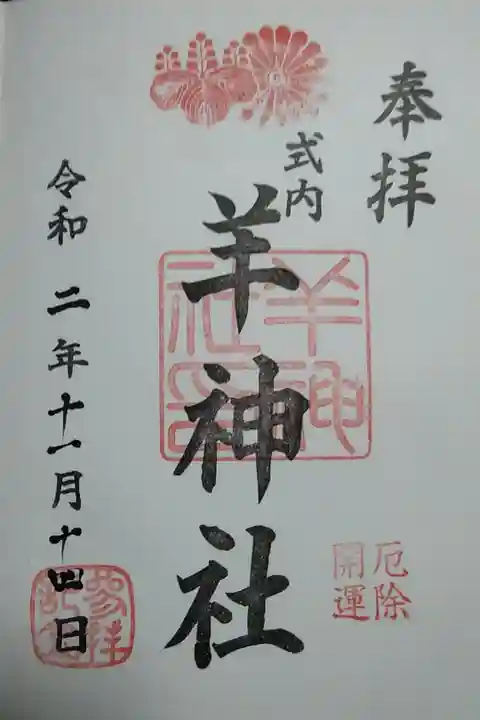 奉拝
式内
羊神社
羊神社印
厄除
開運
令和二年十一月十四日
参拝記念